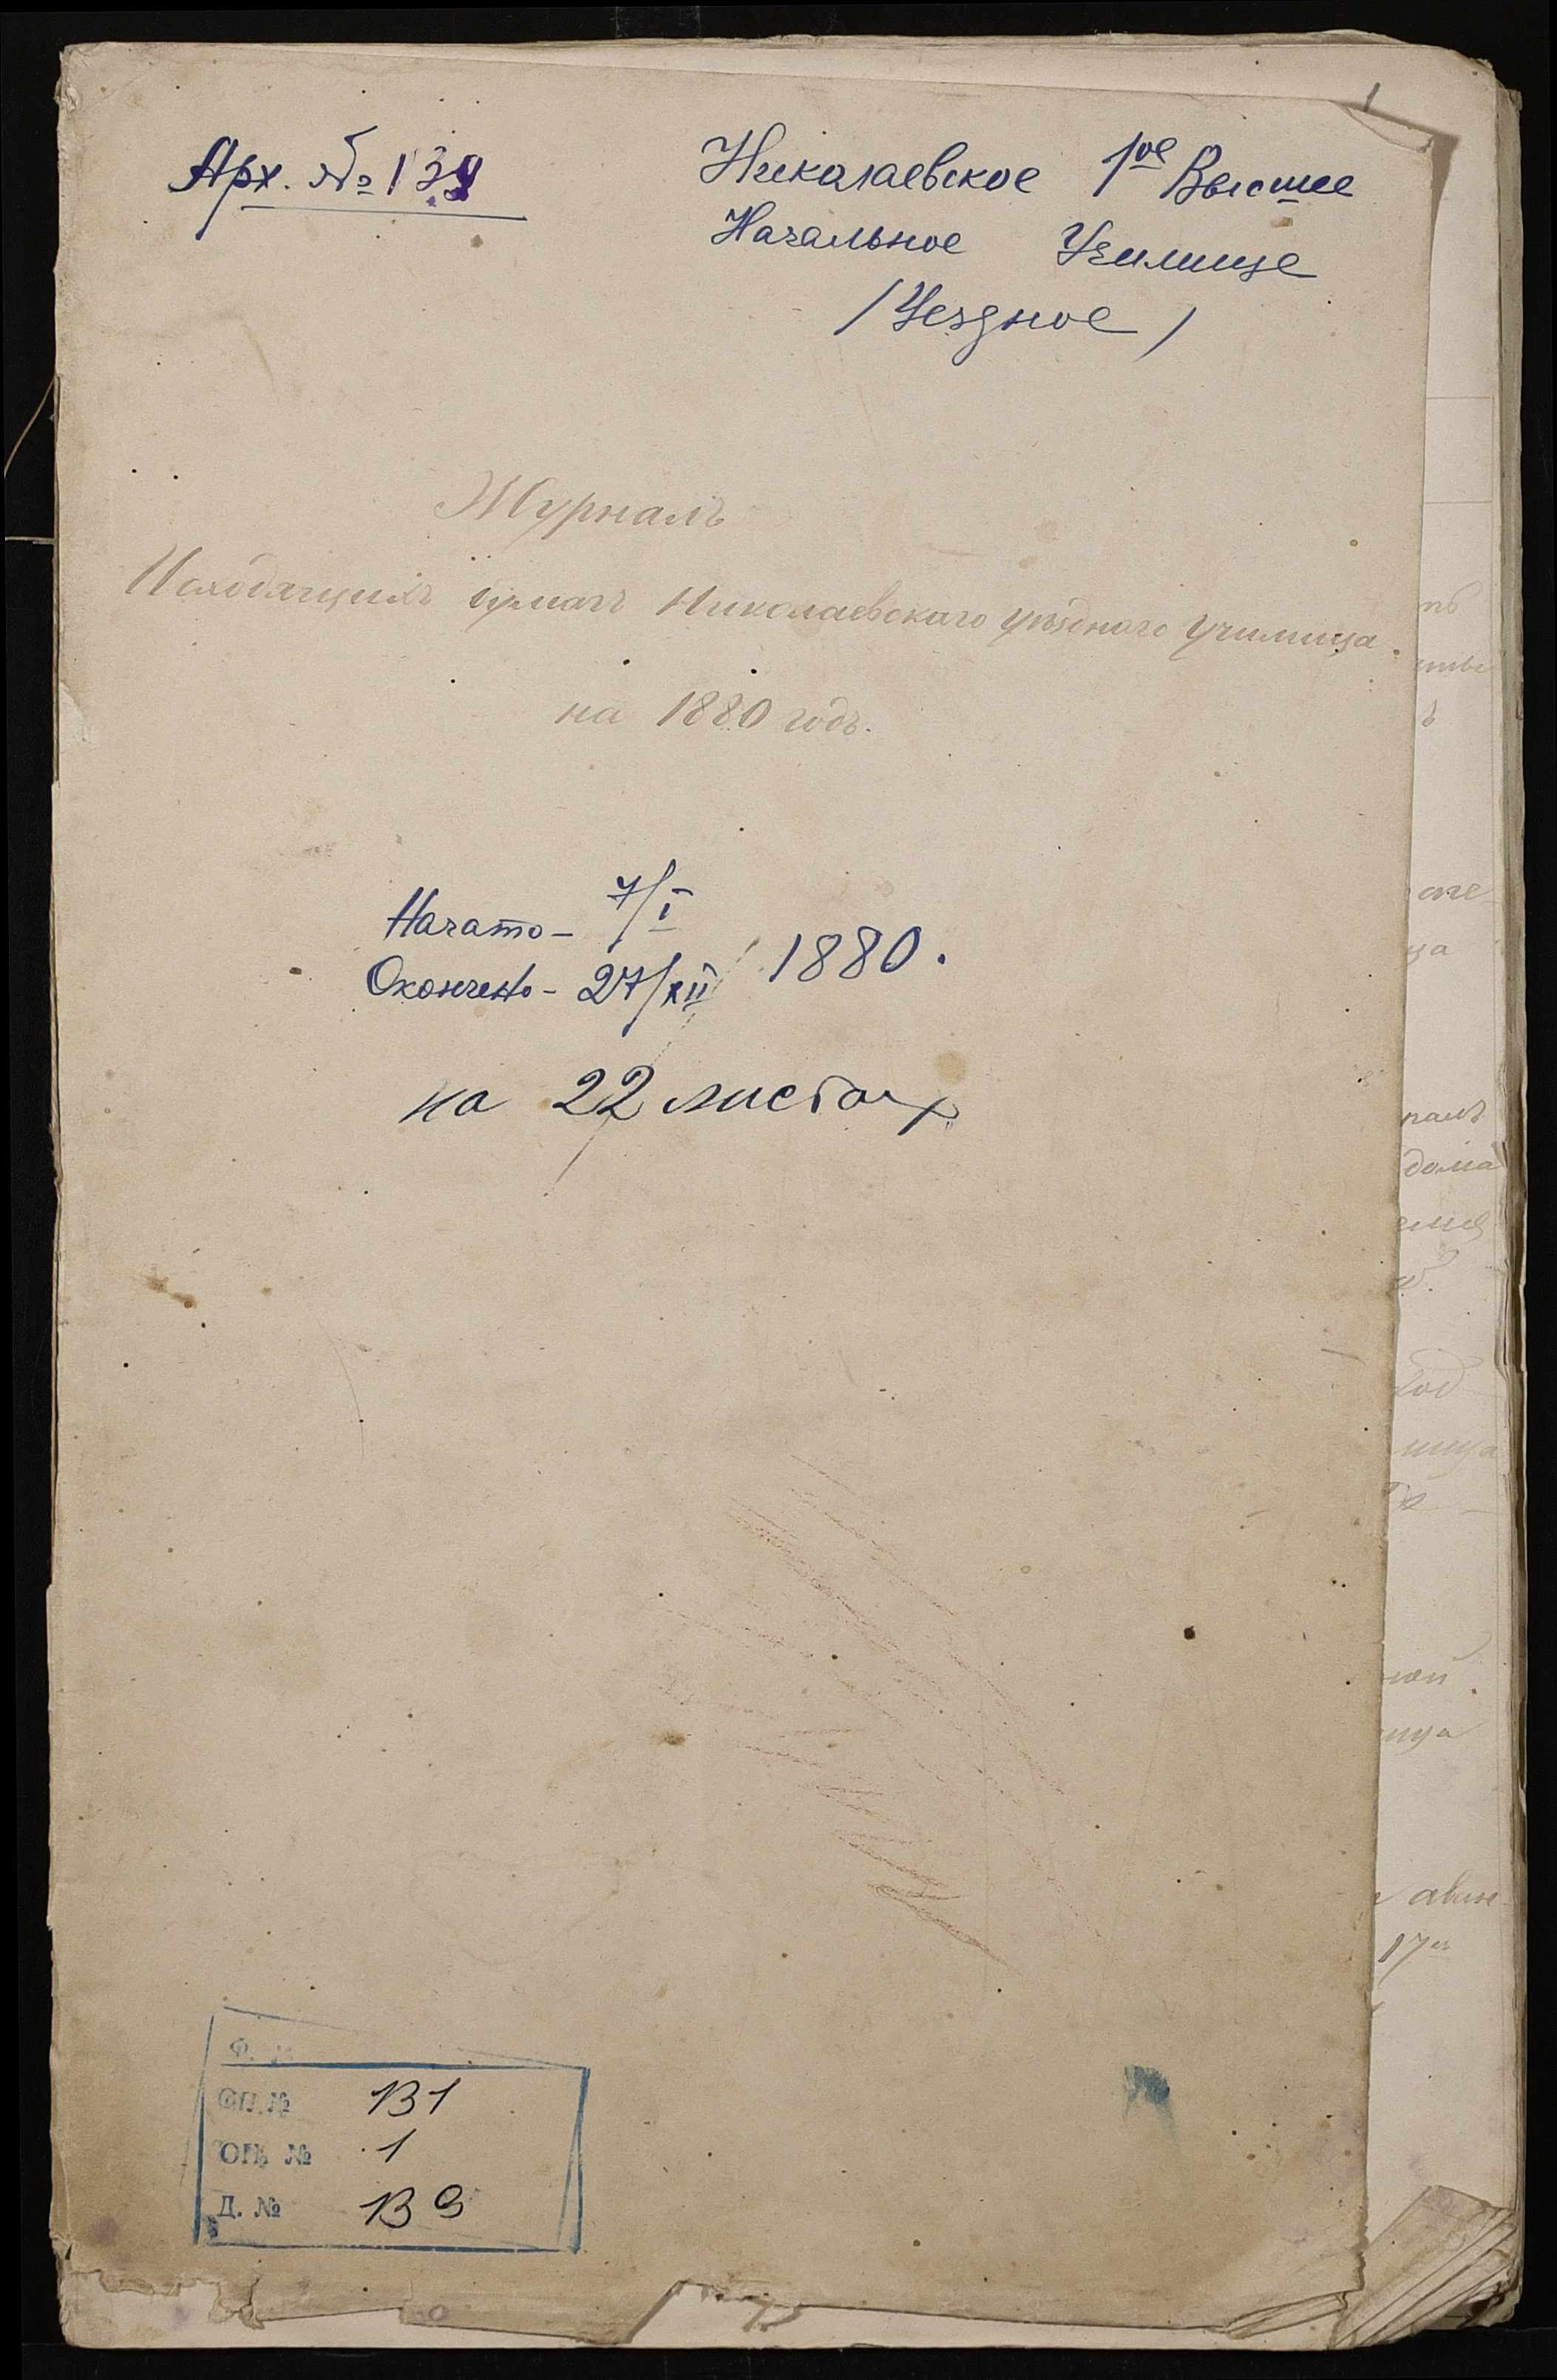 1
Арх. № 139
Николаевское 1ое Высшее
Начальное Училище
/Уездное/
Журналъ
Исходящихъ бумагъ Николаевскаго уѣзднаго училища.
на 1880 годъ.
Начато – 7/I
1880.
Окончено – 27/XII
на 22 листах
Ф.
ОП. № 131
ОП. № 1
Д. № 139